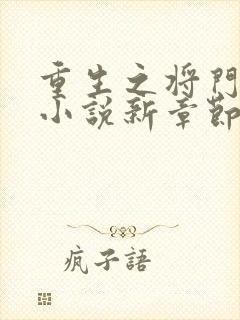 重生之将門
小説新章節
疯子語